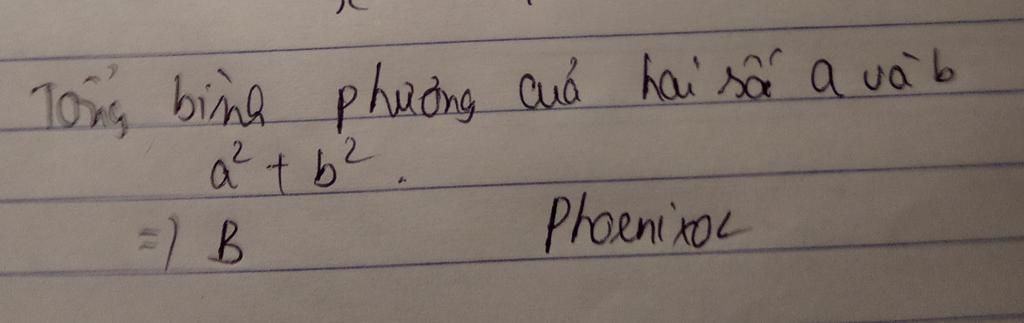 Tổng bình phương của hai số a và b
a² + b².
=) B Phoenixoc